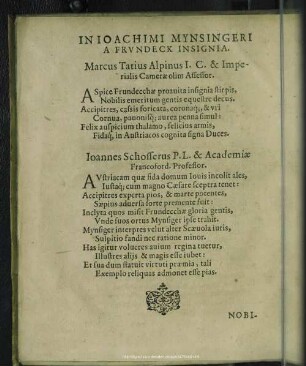 IN IOACHIMI MYNSINGERI
A FRVNDECK INSIGNIA.
Marcus Tatius Alpinus I. C. & Impe-
rialis Cameræ olim Assessor.
ASpice Frundecchæ pronuita insignia stirpis,
Nobilis emeritum gentis equestre decus.
Accipitres, cassis foricata, coronaq;, & vri
Cornua, pauonisq; aurea penna simul:
Felix auspicium thalamo, felicius armis,
Fidaq; in Austriacos cognita signa Duces.
Ioannes Schosserus P.L. & Academiæ
Francoford. Professor.
AVstriacam qua fida domum Iouis incolit ales,
Iustaq; cum magno Cæsare sceptra tenet:
Accipitres experta pios, & marte potentes,
Sæpius aduersa forte premente fuit:
Inclyta quos misit Frundecchæ gloria gentis,
Vnde suos ortus Mynsiger ipse trahit.
Mynsiger interpres velut alter Scæuola iuris,
Sulpitio fandi nec ratione minor.
Has igitur volucres auium regina tuetur,
Illustres alijs & magis esse iubet:
Et sua dum statuit virtuti præmia, tali
Exemplo reliquas admonet esse pias.
NOBI-